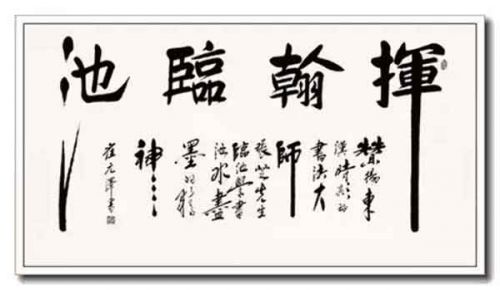 揮翰臨池
贊揚東
漢時期的
書法大
師
張芝先生
臨池學書
池水盡
墨的精
神
崔澤書